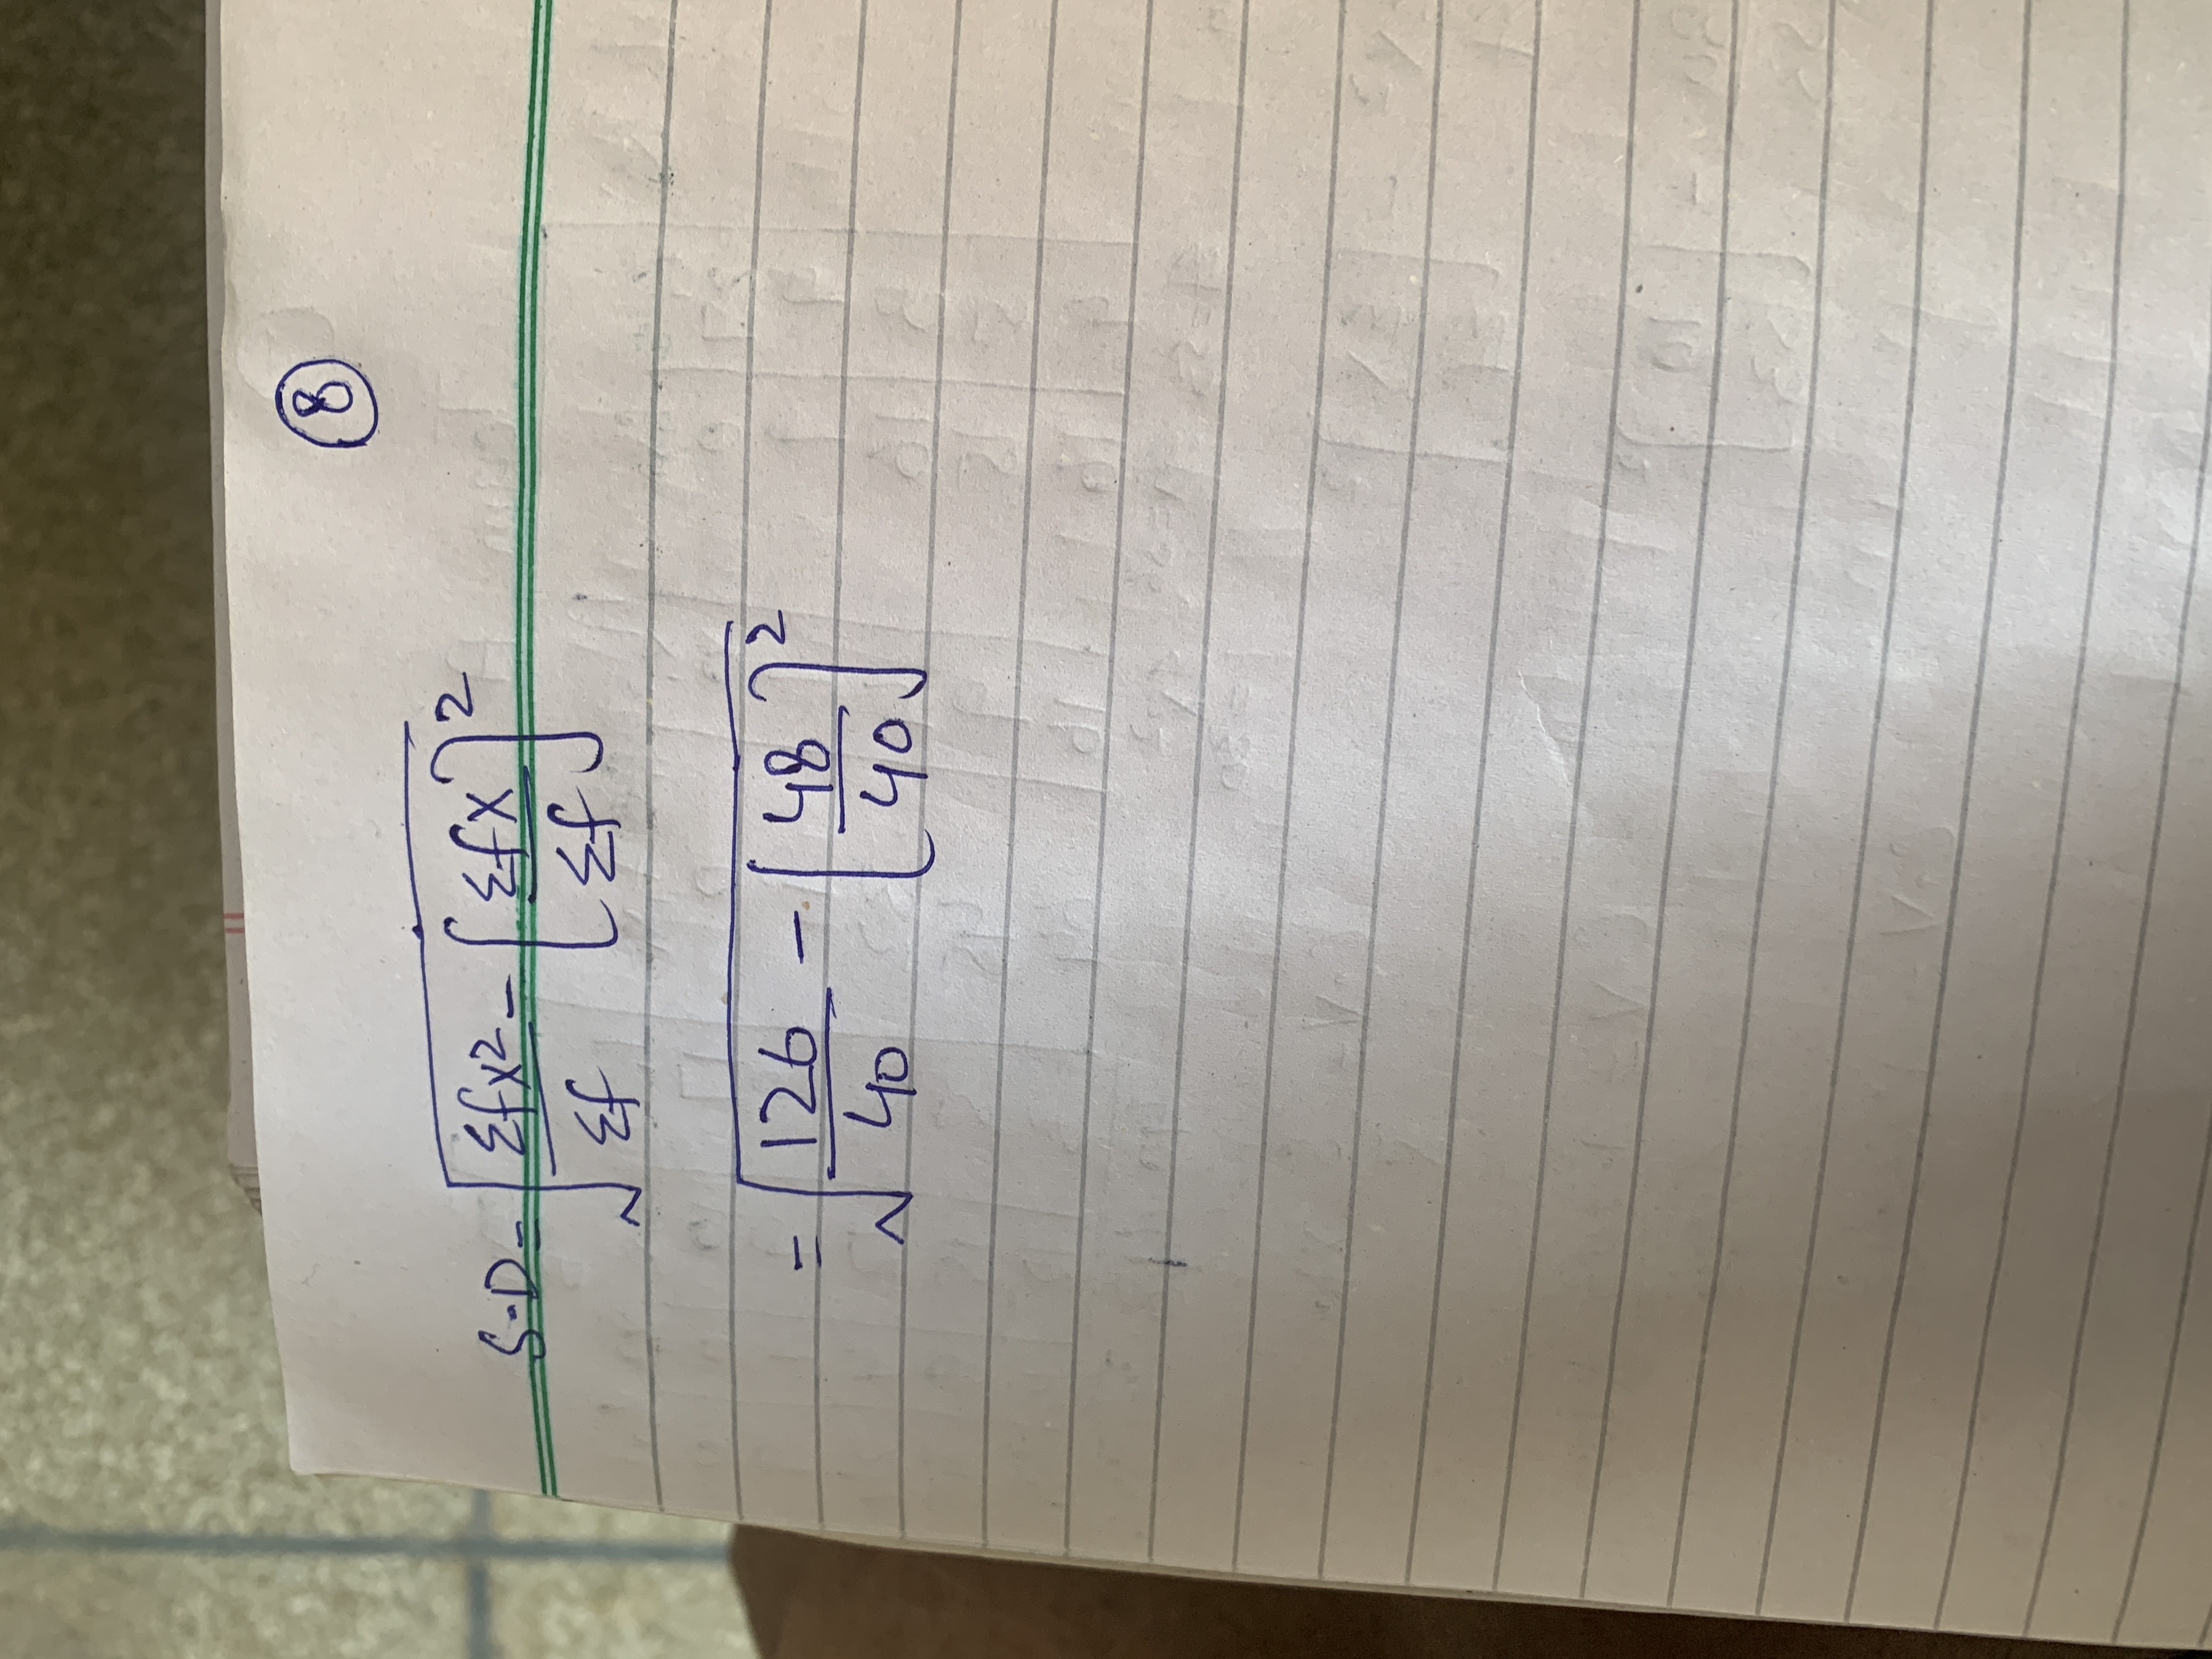 8
S.D = √(Σfx²/Σf − [Σfx/Σf]²)
= √(126/40 − [48/40]²)